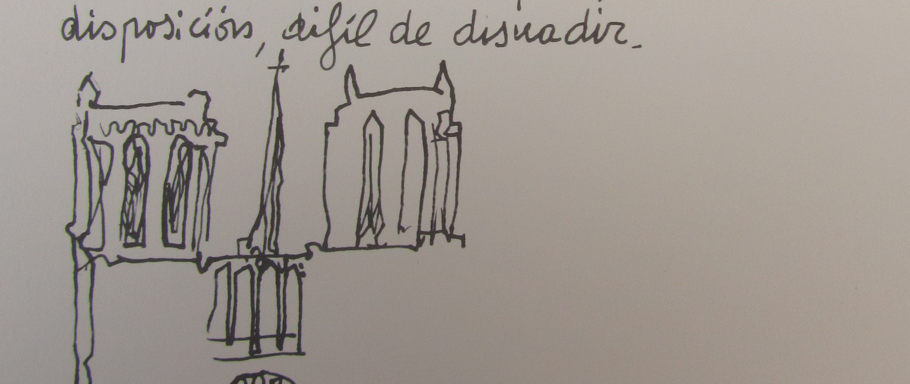 disposición, difíl de disuadir.